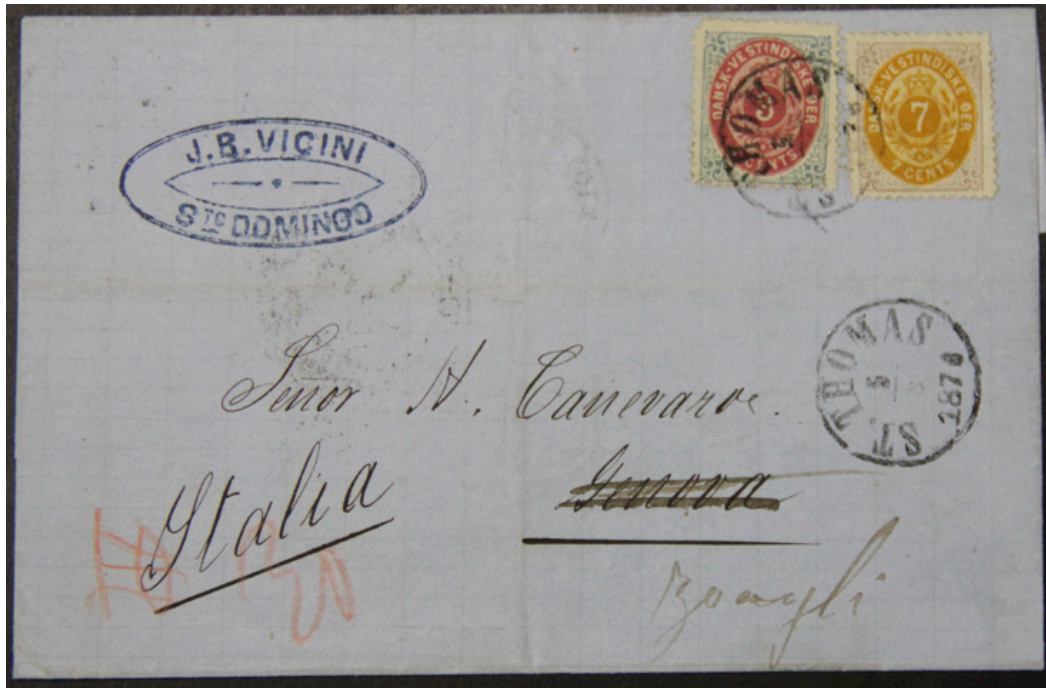 J. B. VICINI
STO DOMINGO
DANSK-VESTINDISKE ØER
3
CENTS
DANSK-VESTINDISKE ØER
7
7 CENTS
ST. THOMAS
Señor N. Canevaro.
Genova
Italia
ST. THOMAS
5
1878
Zoagli